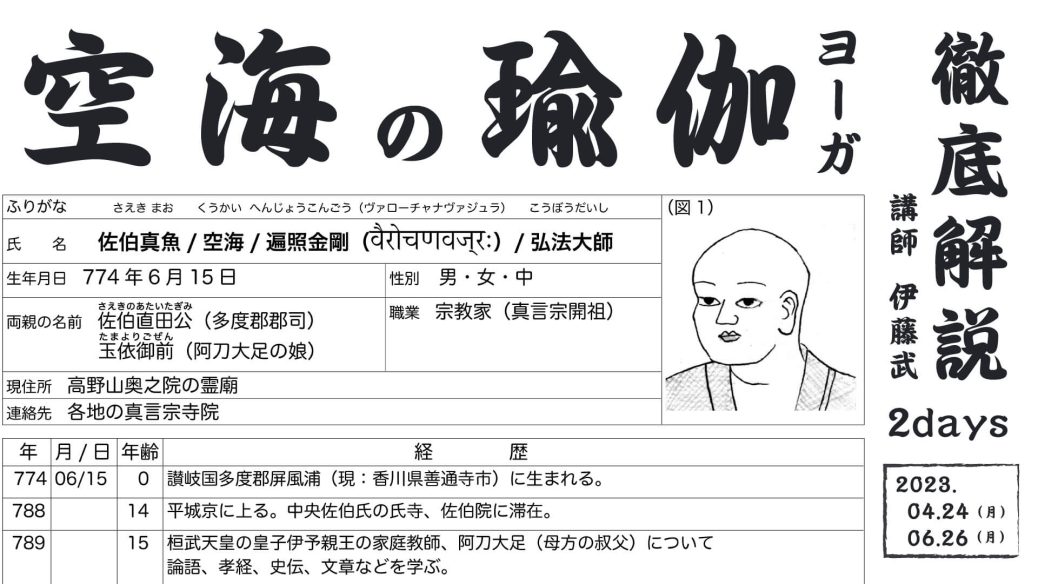 空海の瑜伽
ヨーガ
徹底解説
講師 伊藤武
2days
2023.
04.24(月)
06.26(月)
ふりがな さえき まお くうかい へんじょうこんごう(ヴァローチャナヴァジュラ) こうぼうだいし
氏 名 佐伯真魚 / 空海 / 遍照金剛(वैरोचणवज्रः) / 弘法大師
生年月日 774年6月15日
性別 男・女・中
両親の名前
さえきのあたいたぎみ
佐伯直田公(多度郡郡司)
たまよりごぜん
玉依御前(阿刀大足の娘)
職業 宗教家(真言宗開祖)
現住所 高野山奥之院の霊廟
連絡先 各地の真言宗寺院
(図1)
年 月/日 年齢 経 歴
774 06/15 0 讃岐国多度郡屏風浦(現:香川県善通寺市)に生まれる。
788 14 平城京に上る。中央佐伯氏の氏寺、佐伯院に滞在。
789 15 桓武天皇の皇子伊予親王の家庭教師、阿刀大足(母方の叔父)について
論語、孝経、史伝、文章などを学ぶ。